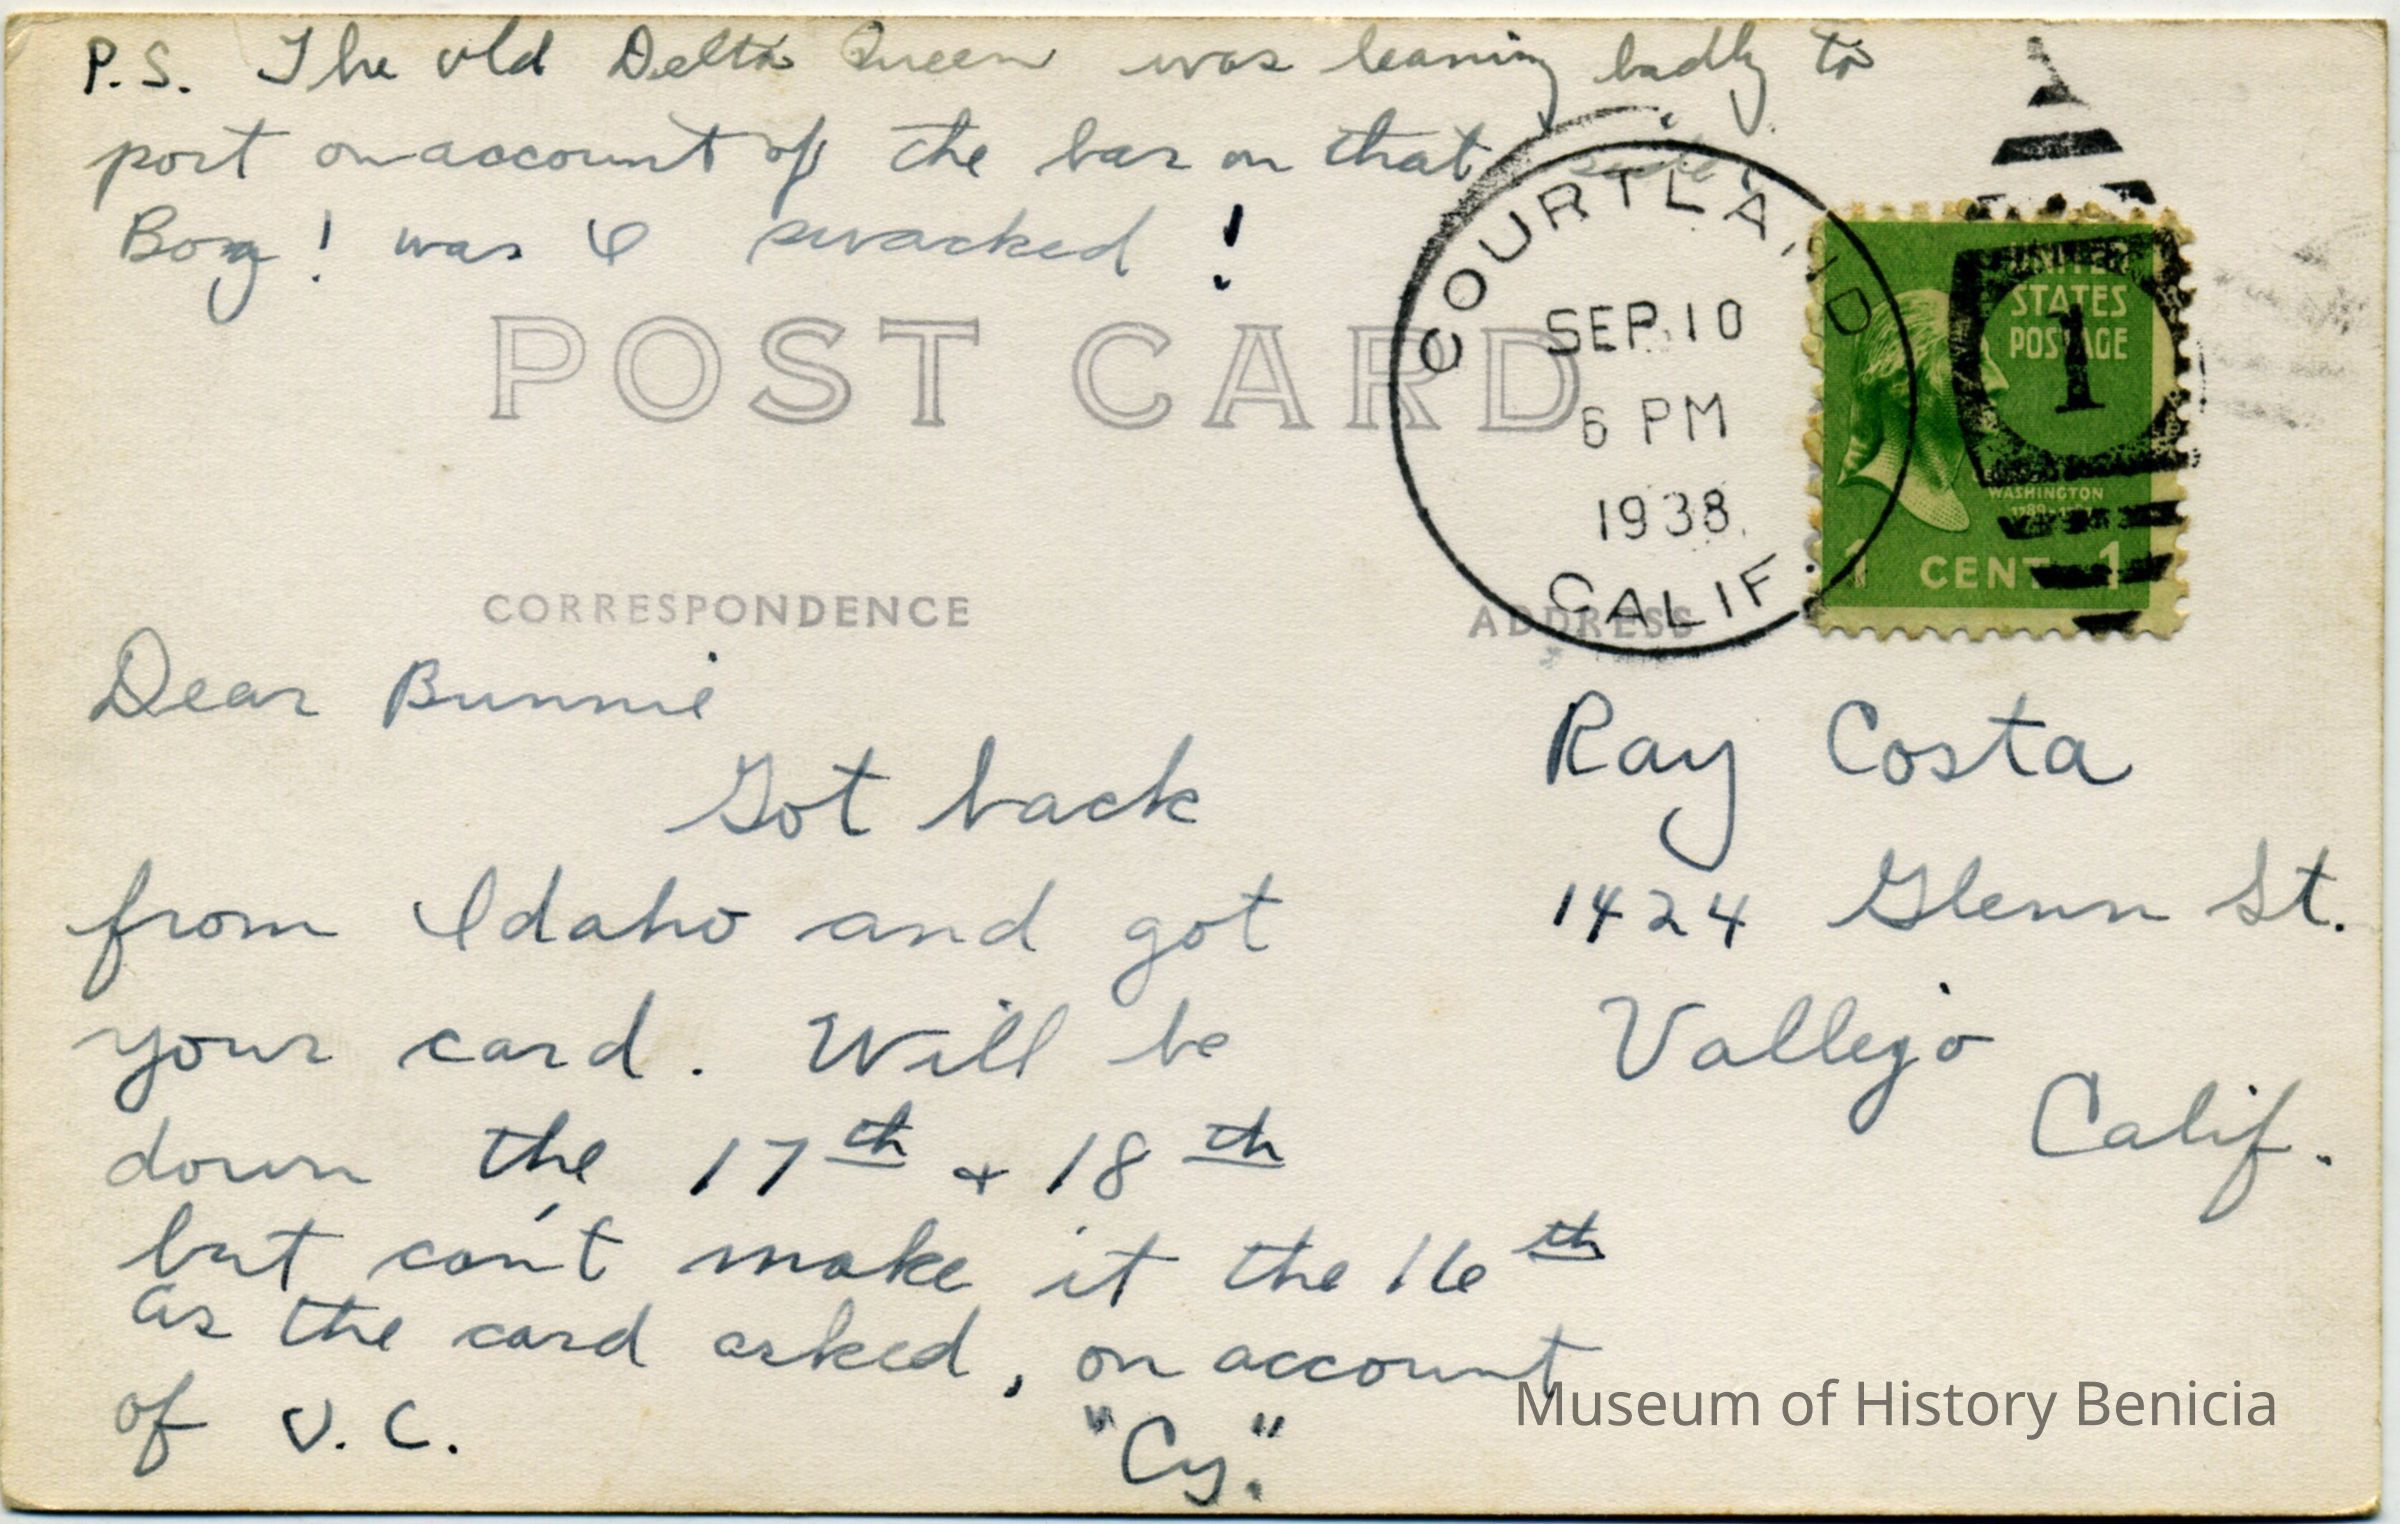 P.S. The old Delta Queen was leaning badly to
port on account of the bar on that side.
Boy! was I swacked!
POST CARD
COURTLAND
SEP 10
6 PM
1938
CALIF.
UNITED
STATES
POSTAGE
1
WASHINGTON
1 CENT 1
CORRESPONDENCE
ADDRESS
Dear Bunnie
Got back
from Idaho and got
your card. Will be
down the 17th + 18th
but can't make it the 16th
as the card asked, on account
of U.C.
"Cy."
Ray Costa
1424 Glenn St.
Vallejo
Calif.
Museum of History Benicia